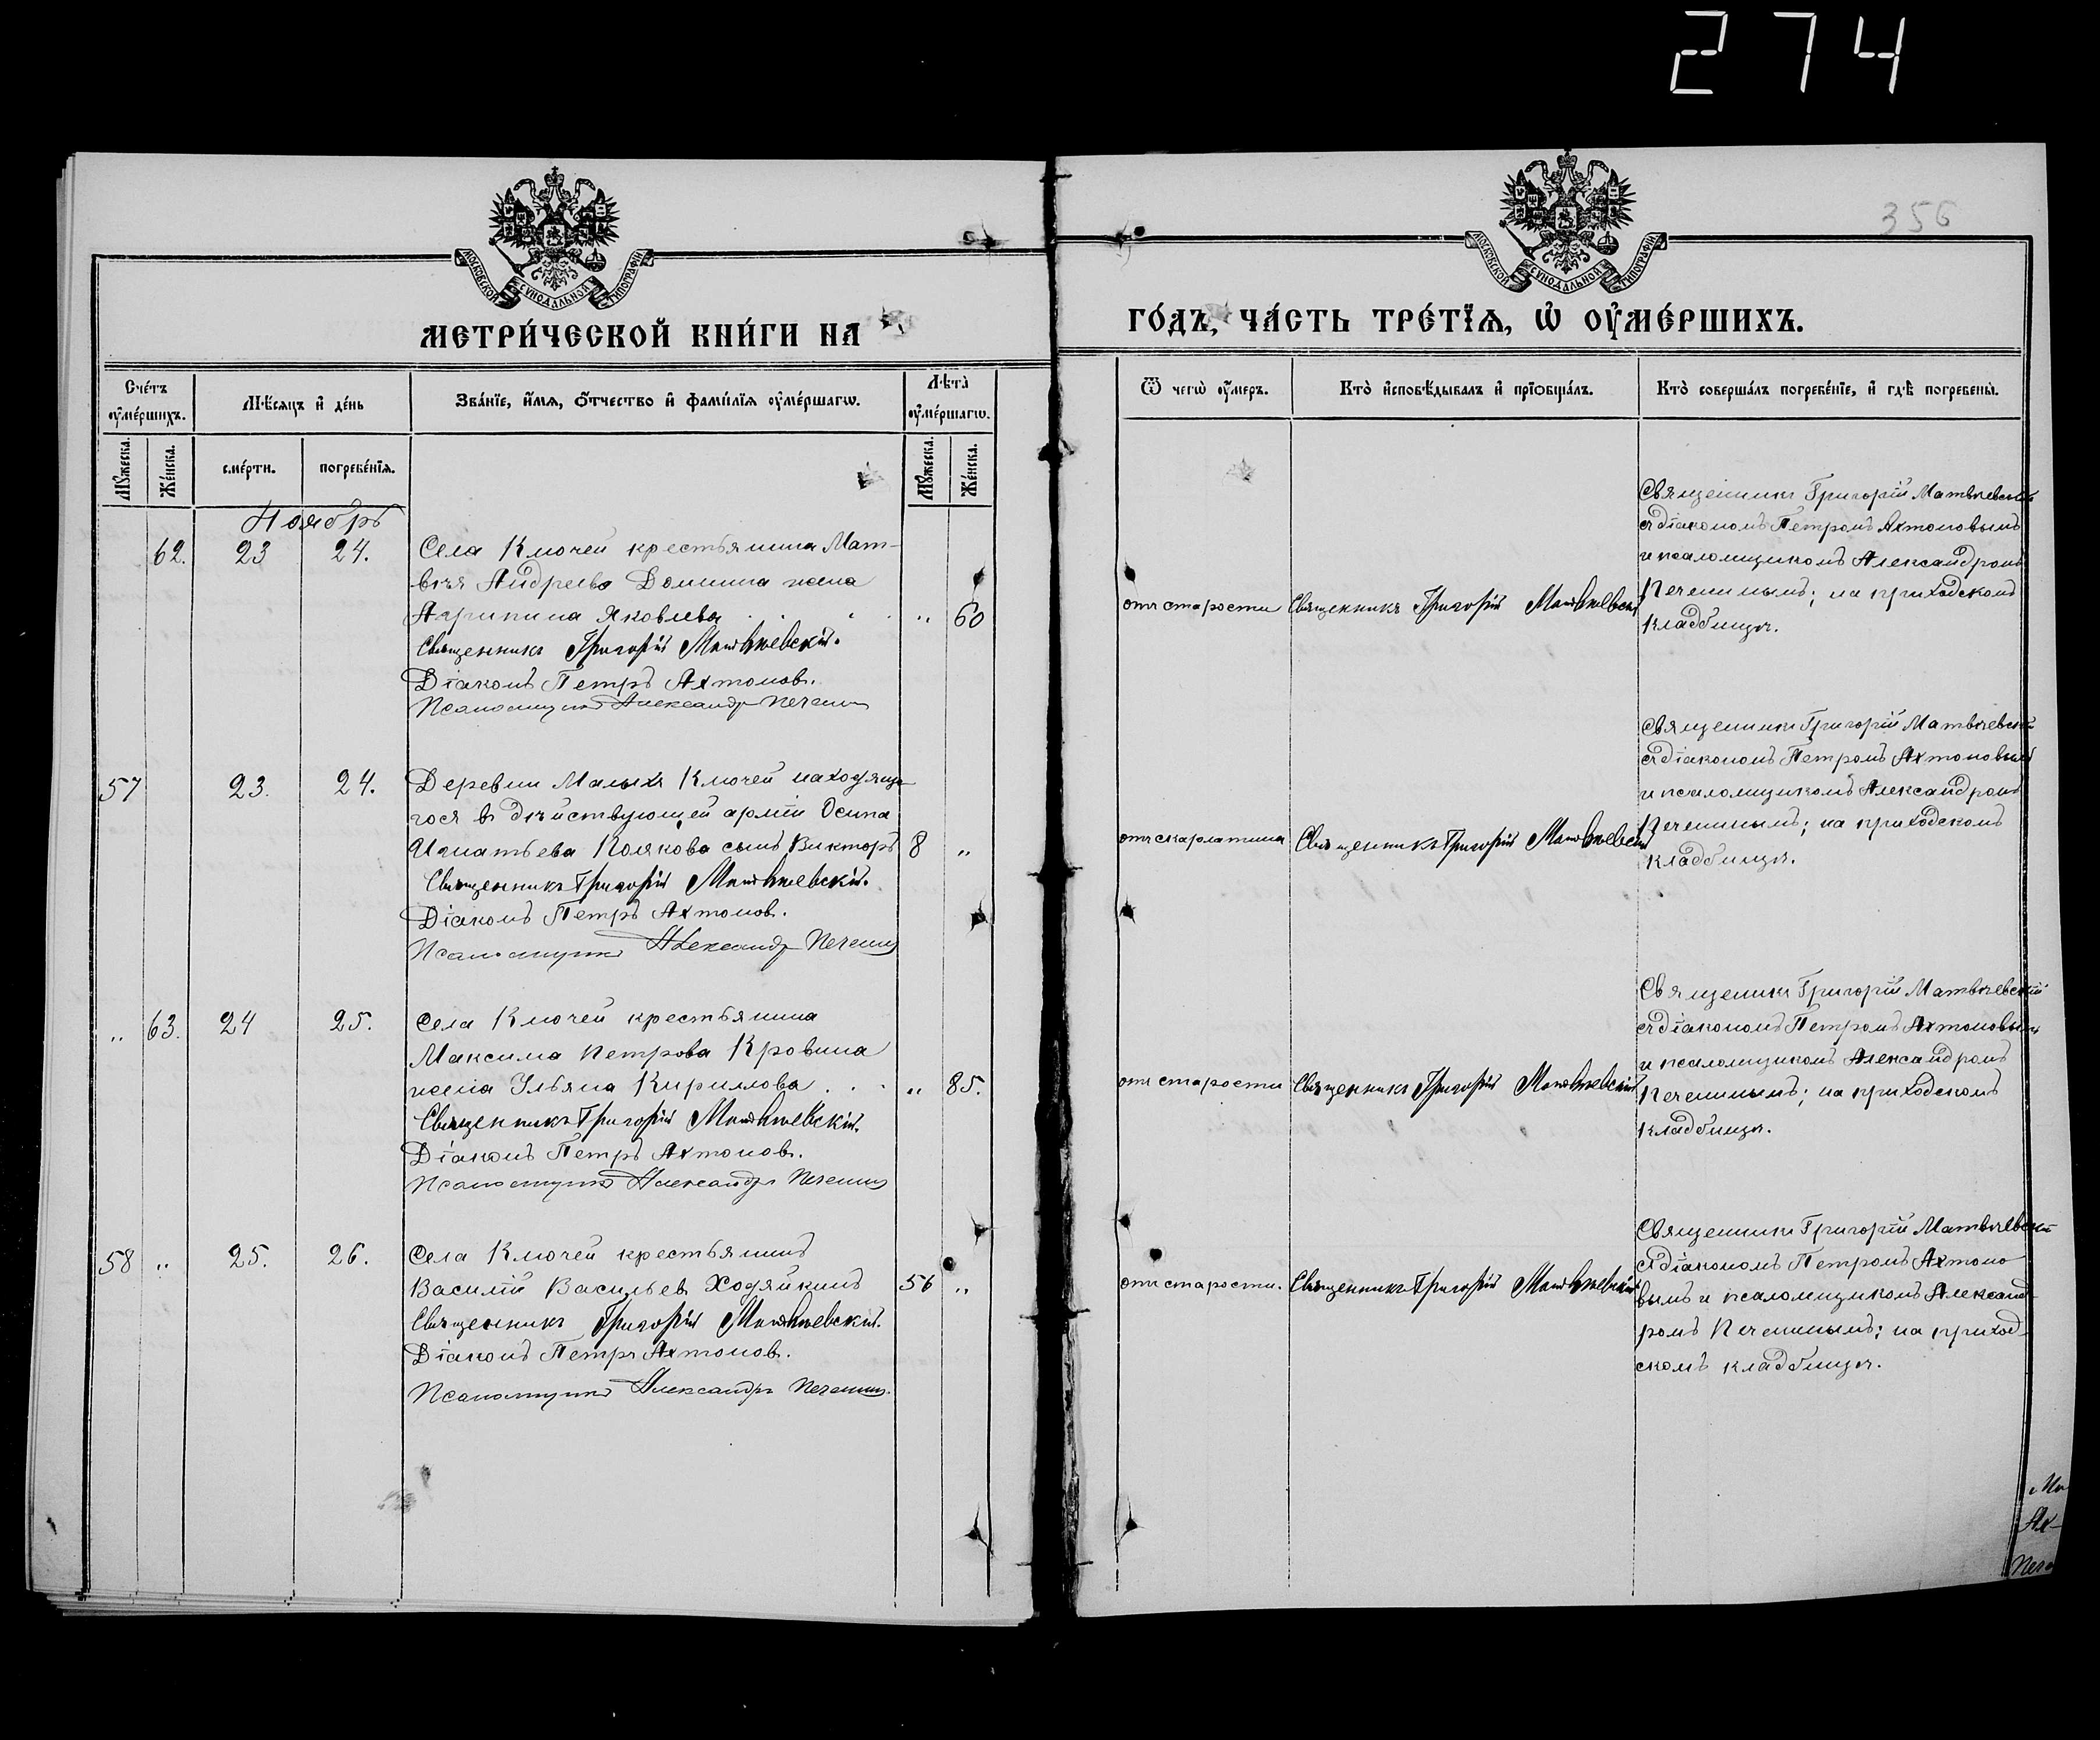 274
356
МОСКОВСКОЙ СѴНОДАЛЬНОЙ ТИПОГРАФІИ
МОСКОВСКОЙ СѴНОДАЛЬНОЙ ТИПОГРАФІИ
МЕТРИ́ЧЕСКОЙ КНИ́ГИ НА
ГО́ДЪ, ЧА́СТЬ ТРЕ́ТЇѦ, Ѡ҆ ОУ҆МЕ́РШИХЪ.
Сче́тъ оу҆ме́ршихъ.
Мѣ́сѧцъ и҆ де́нь
Зва́нїе, и҆́мѧ, ѻ҆́тчество и҆ фамі́лїѧ оу҆ме́ршагѡ.
Лѣ́та оу҆ме́ршагѡ.
Мꙋ́жеска.
Же́нска.
сме́рти.
погребе́нїѧ.
Мꙋ́жеска.
Же́нска.
Ѿ чегѡ̀ оу҆́меръ.
Кто̀ и҆сповѣ́дывалъ и҆ прїѻбща́лъ.
Кто̀ соверша́лъ погребе́нїе, и҆ гдѣ̀ погребены̀.
Ноябрь
62. 23 24.
Села Ключей крестьянина Мат-
вѣя Андреева Домнина жена
Агрипина Яковлева . . . „ 60
Священникъ Григорій Матвѣевскій.
Діаконъ Петръ Ахтонов.
Псаломщикъ Александр Печенин
отъ старости
Священникъ Григорій Матвѣевскій
Священникъ Григорій Матвѣевскій
съ діакономъ Петромъ Ахтоновымъ
и псаломщикомъ Александромъ
Печенинымъ; на приходскомъ
кладбищѣ.
57 23. 24.
Деревни Малыхъ Ключей находяща-
гося въ дѣйствующей арміи Осипа
Игнатьева Полякова сынъ Викторъ 8 „
Священникъ Григорій Матвѣевскій.
Діаконъ Петръ Ахтонов.
Псаломщикъ Александр Печенин
отъ скарлатина
Священникъ Григорій Матвѣевскій
Священникъ Григорій Матвѣевскій
съ діакономъ Петромъ Ахтоновымъ
и псаломщикомъ Александромъ
Печенинымъ; на приходскомъ
кладбищѣ.
„ 63. 24 25.
Села Ключей крестьянина
Максима Петрова Кровина
жена Ульяна Кириллова . . . „ 85.
Священникъ Григорій Матвѣевскій.
Діаконъ Петръ Ахтонов.
Псаломщикъ Александръ Печенин
отъ старости
Священникъ Григорій Матвѣевскій
Священникъ Григорій Матвѣевскій
съ діакономъ Петромъ Ахтоновымъ
и псаломщикомъ Александромъ
Печенинымъ; на приходскомъ
кладбищѣ.
58 „ 25. 26.
Села Ключей крестьянинъ
Василій Васильев Ходяйкинъ 56 „
Священникъ Григорій Матвѣевскій.
Діаконъ Петръ Ахтонов.
Псаломщикъ Александръ Печенин.
отъ старости.
Священникъ Григорій Матвѣевскій
Священникъ Григорій Матвѣевскій
съ діакономъ Петромъ Ахтоно
вымъ и псаломщикомъ Александ-
ромъ Печенинымъ; на приход-
скомъ кладбищѣ.